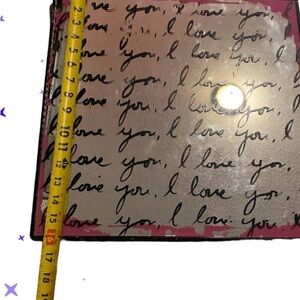 ve you, I love you,
love you, I love you,
I love you, I love you, I
love you, I love you,
love you, I love you,
I love you, I love you, I
love you, I love you,
I love you, I love you,
love you, I love you,
love you, I love you, I
2 3 4 5 6 7 8 9 10 11 12 13 14 15 16 17 18